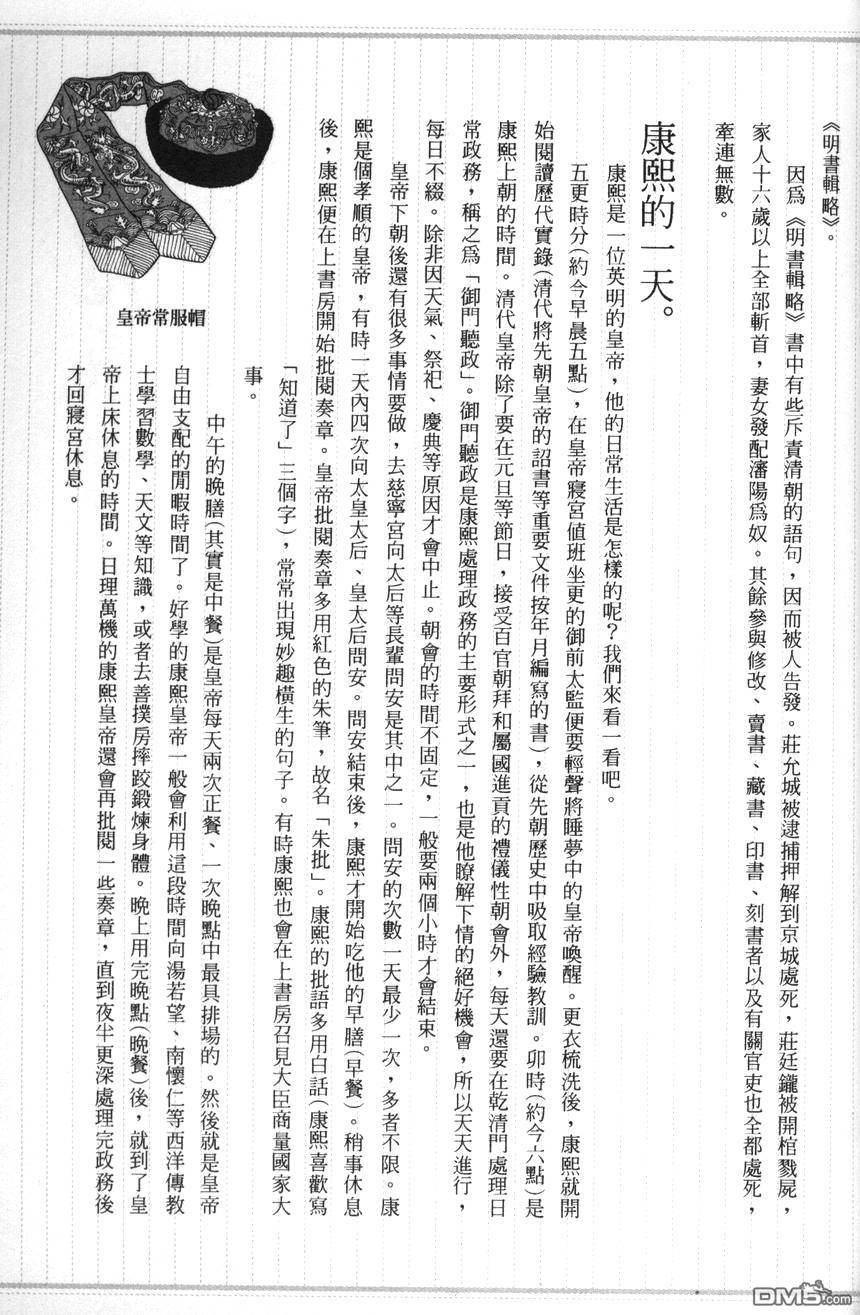 《明書輯略》。
因爲《明書輯略》書中有些斥責清朝的語句，因而被人告發。莊允城被逮捕押解到京城處死，莊廷鑨被開棺戮屍，
家人十六歲以上全部斬首，妻女發配瀋陽爲奴。其餘參與修改、賣書、藏書、印書、刻書者以及有關官吏也全都處死，
牽連無數。
康熙的一天。
康熙是一位英明的皇帝，他的日常生活是怎樣的呢？我們來看一看吧。
五更時分(約今早晨五點)，在皇帝寢宮值班坐更的御前太監便要輕聲將睡夢中的皇帝喚醒。更衣梳洗後，康熙就開
始閱讀歷代實錄(清代將先朝皇帝的詔書等重要文件按年月編寫的書)，從先朝歷史中吸取經驗教訓。卯時(約今六點)是
康熙上朝的時間。清代皇帝除了要在元旦等節日，接受百官朝拜和屬國進貢的禮儀性朝會外，每天還要在乾清門處理日
常政務，稱之爲「御門聽政」。御門聽政是康熙處理政務的主要形式之一，也是他瞭解下情的絕好機會，所以天天進行，
每日不綴。除非因天氣、祭祀、慶典等原因才會中止。朝會的時間不固定，一般要兩個小時才會結束。
皇帝下朝後還有很多事情要做，去慈寧宮向太后等長輩問安是其中之一。問安的次數一天最少一次，多者不限。康
熙是個孝順的皇帝，有時一天內四次向太皇太后、皇太后問安。問安結束後，康熙才開始吃他的早膳(早餐)。稍事休息
後，康熙便在上書房開始批閱奏章。皇帝批閱奏章多用紅色的朱筆，故名「朱批」。康熙的批語多用白話(康熙喜歡寫
「知道了」三個字)，常常出現妙趣橫生的句子。有時康熙也會在上書房召見大臣商量國家大
事。
中午的晚膳(其實是中餐)是皇帝每天兩次正餐、一次晚點中最具排場的。然後就是皇帝
自由支配的閒暇時間了。好學的康熙皇帝一般會利用這段時間向湯若望、南懷仁等西洋傳教
士學習數學、天文等知識，或者去善撲房摔跤鍛煉身體。晚上用完晚點(晚餐)後，就到了皇
帝上床休息的時間。日理萬機的康熙皇帝還會再批閱一些奏章，直到夜半更深處理完政務後
才回寢宮休息。
皇帝常服帽
DM5.com